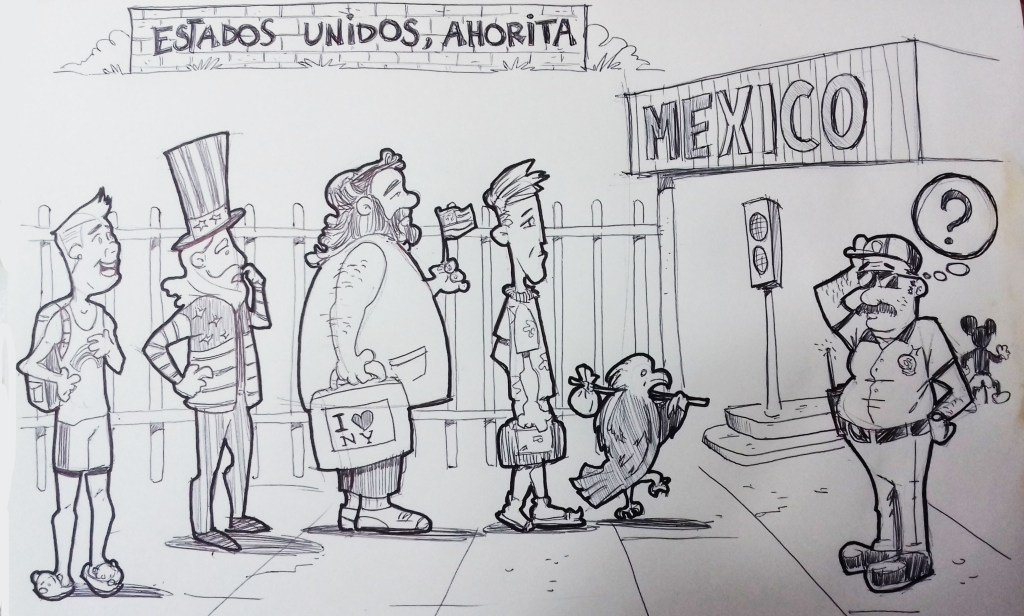 ESTADOS UNIDOS, AHORITA
MEXICO
?
I ♥
NY